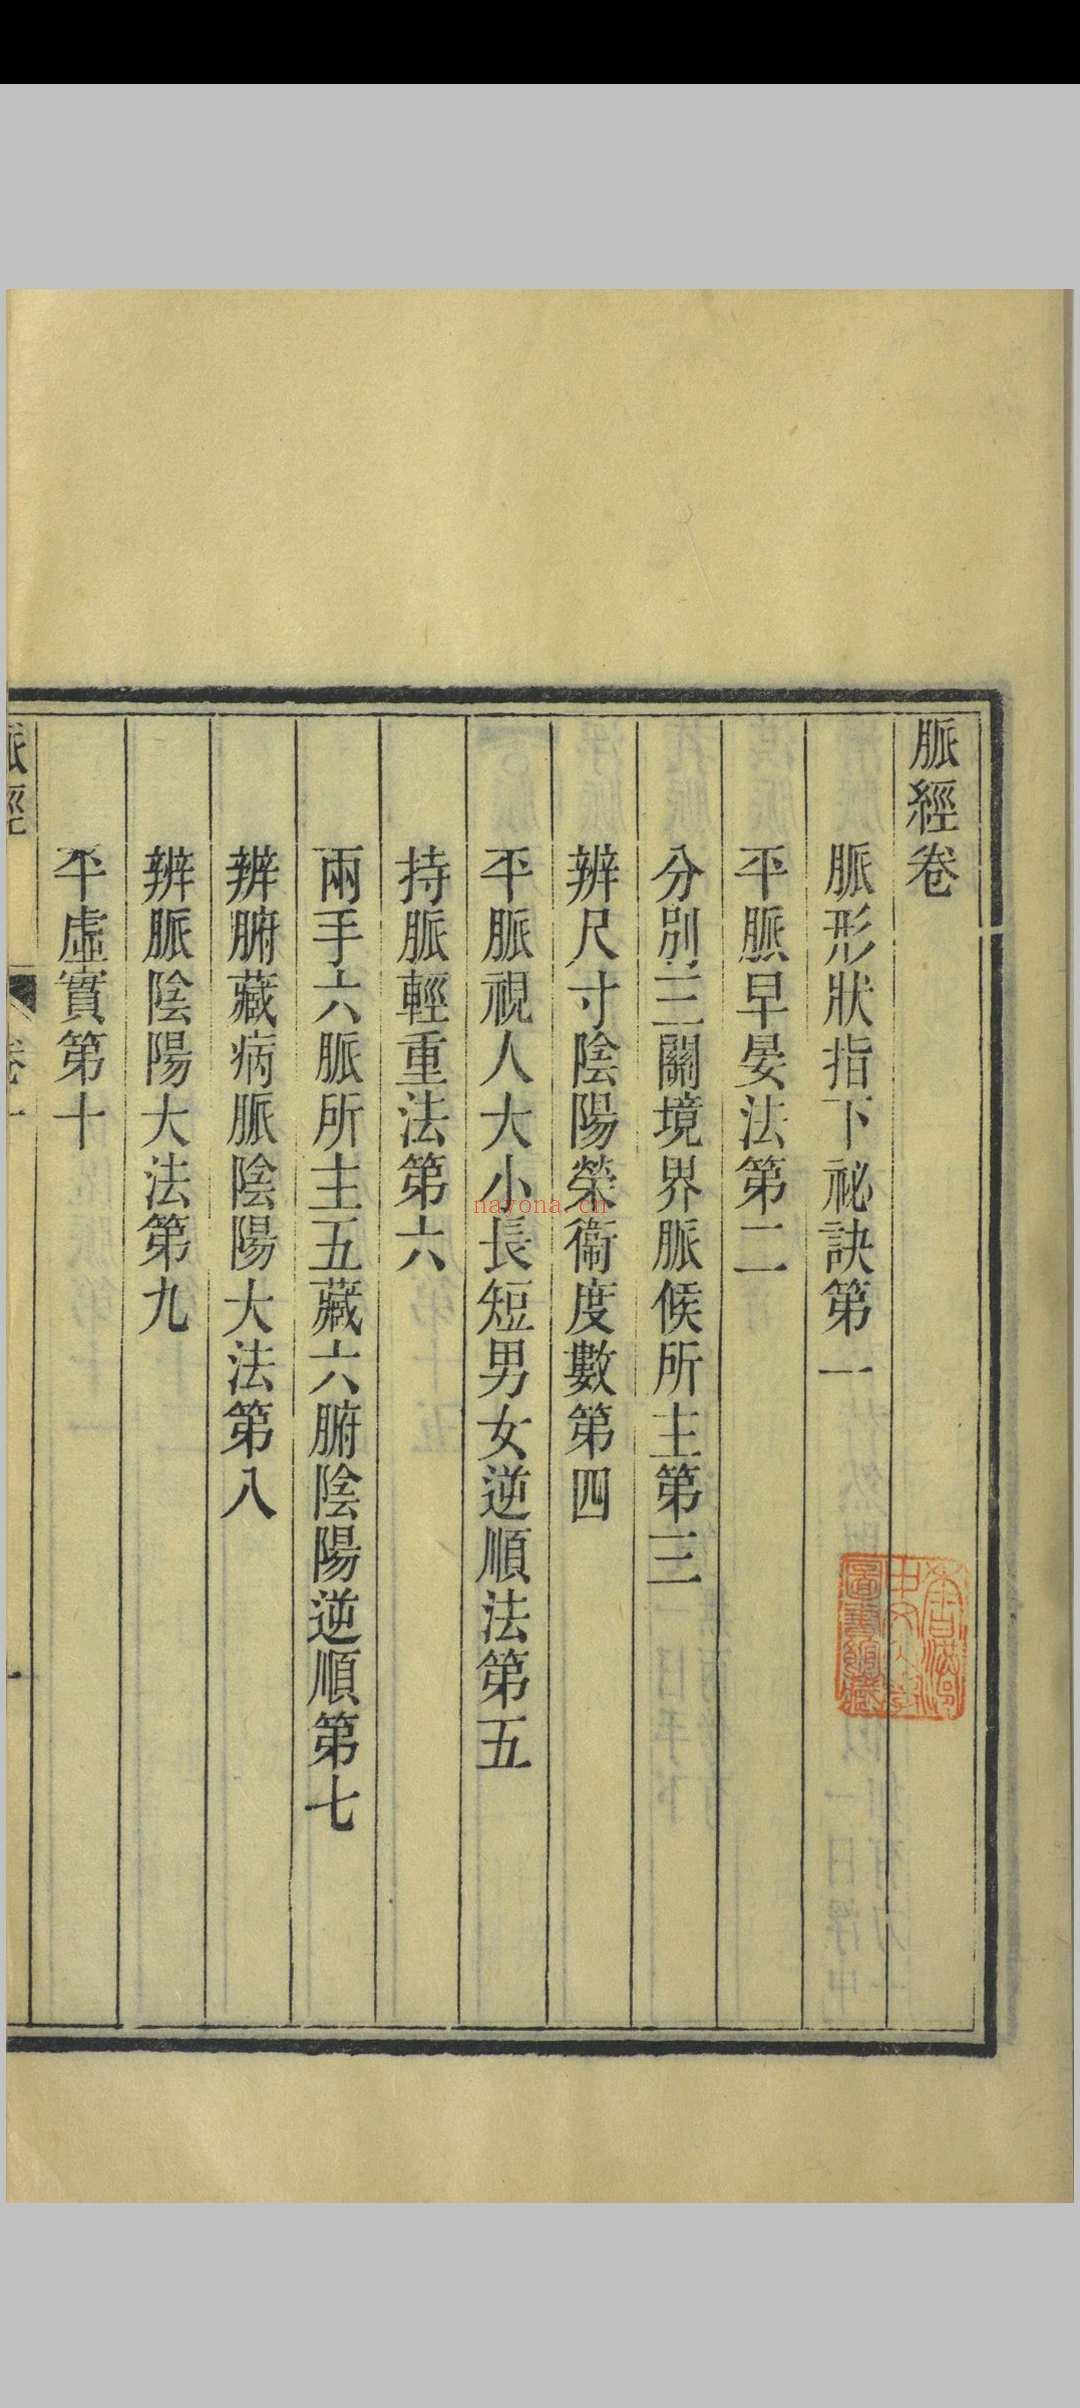 脈經卷
脈形狀指下祕訣第一
平脈早晏法第二
分別三關境界脈候所主第三
辨尺寸陰陽榮衞度數第四
平脈視人大小長短男女逆順法第五
持脈輕重法第六
兩手六脈所主五藏六腑陰陽逆順第七
辨腑藏病脈陰陽大法第八
辨脈陰陽大法第九
平虛實第十
脈經
卷一
一
nayona.cn